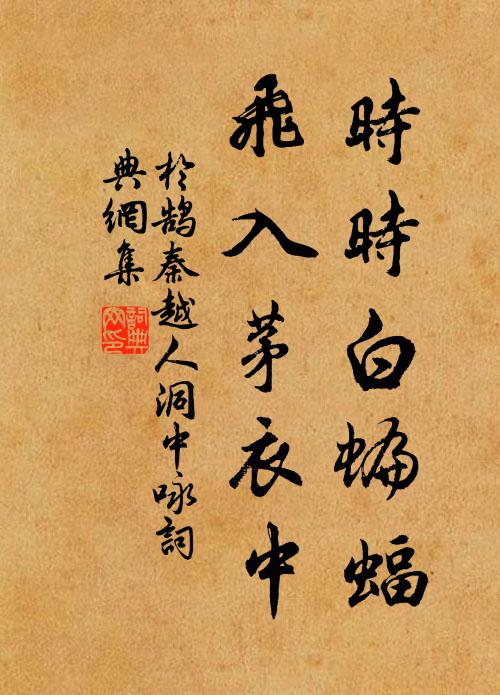 時時白蝙蝠
飛入茅衣中
於鵠秦越人洞中咏詞
典網集
詞典
网印